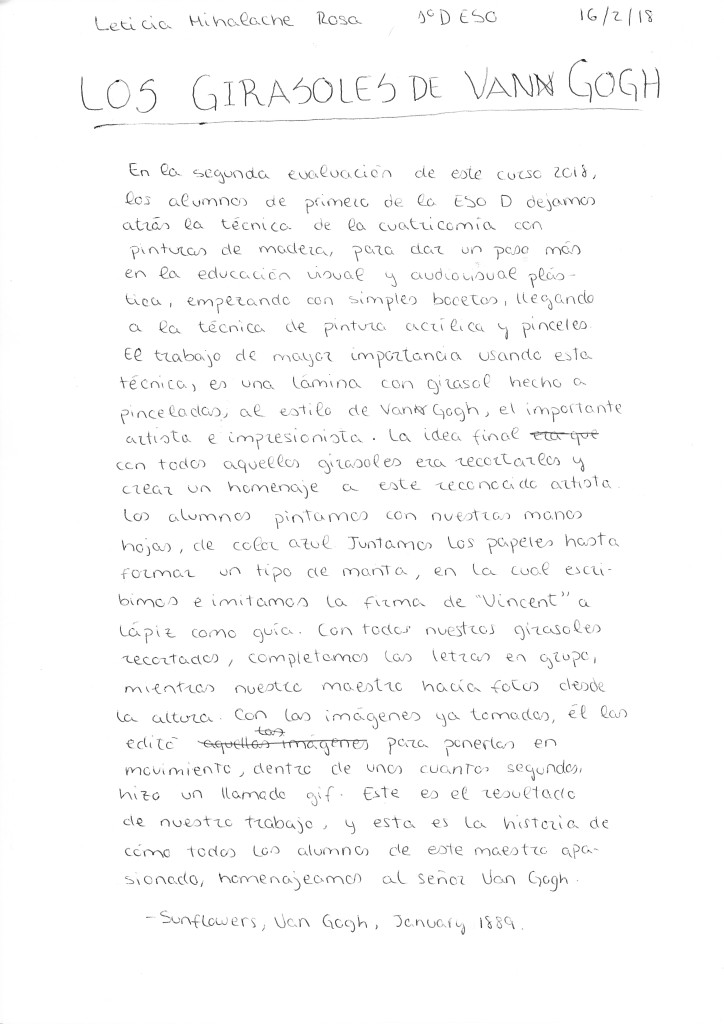 Leticia Mihalache Rosa 1ºD ESO 16/2/18
LOS GIRASOLES DE VANN GOGH
En la segunda evaluación de este curso 2018,
los alumnos de primero de la ESO D dejamos
atrás la técnica de la cuatricomía con
pinturas de madera, para dar un paso más
en la educación visual y audiovisual plás-
tica, empezando con simples bocetos, llegando
a la técnica de pintura acrílica y pinceles.
El trabajo de mayor importancia usando esta
técnica, es una lámina con girasol hecho a
pinceladas, al estilo de Van Gogh, el importante
artista e impresionista. La idea final era que
con todos aquellos girasoles era recortarlos y
crear un homenaje a este reconocido artista.
Los alumnos pintamos con nuestras manos
hojas, de color azul Juntamos los papeles hasta
formar un tipo de manta, en la cual escri-
bimos e imitamos la firma de "Vincent" a
lápiz como guía. Con todos nuestros girasoles
recortados, completamos las letras en grupo,
mientras nuestro maestro hacía fotos desde
la altura. Con las imágenes ya tomadas, él las
editó aquellas imágenes tas para ponerlas en
movimiento, dentro de unos cuantos segundos,
hizo un llamado gif. Este es el resultado
de nuestro trabajo, y esta es la historia de
cómo todos los alumnos de este maestro apa-
sionado, homenajeamos al señor Van Gogh.
-Sunflowers, Van Gogh, January 1889.